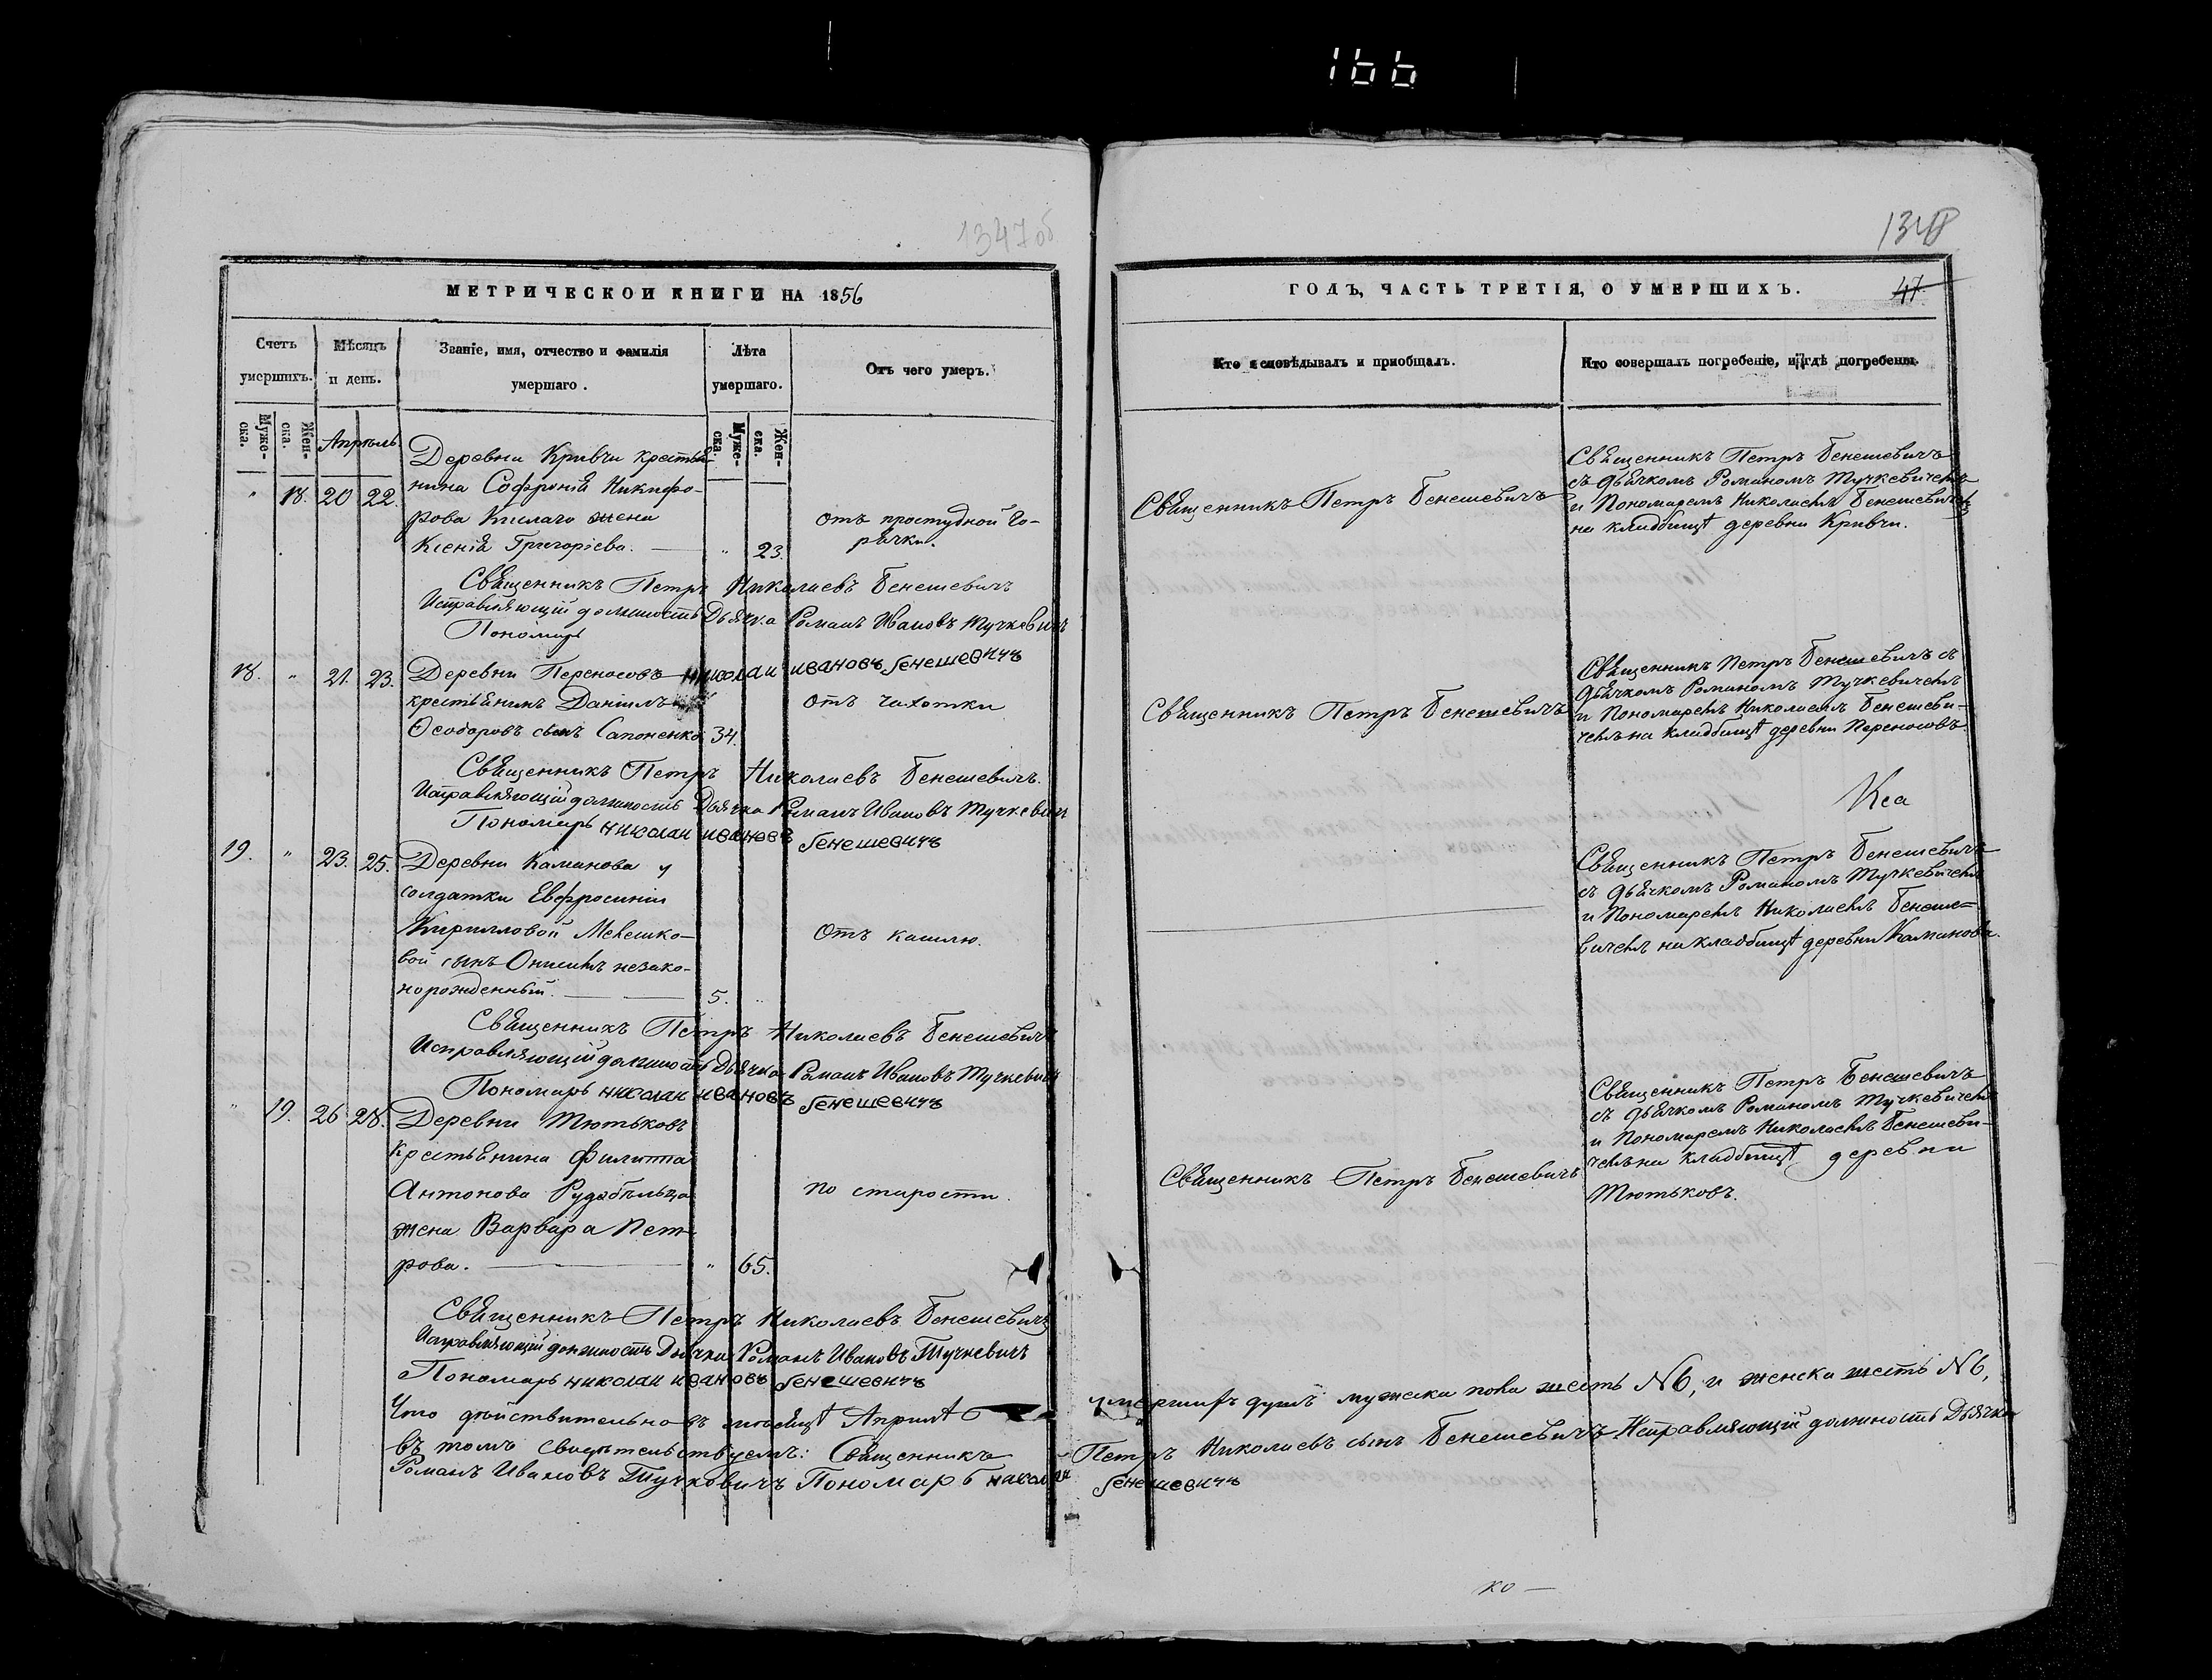 166
1347об
1348
МЕТРИЧЕСКОИ КНИГИ НА 1856
ГОДЪ, ЧАСТЬ ТРЕТІЯ, О УМЕРШИХЪ.
47
Счетъ умершихъ.
Мѣсяцъ и день.
Званіе, имя, отчество и фамилія умершаго.
Лѣта умершаго.
Отъ чего умеръ.
Кто исповѣдывалъ и пріобщалъ.
Кто совершалъ погребеніе, и гдѣ погребены.
Муже-ска.
Жен-ска.
Апрѣль
Муже-ска.
Жен-ска.
" 18. 20 22.
Деревни Кривчи крестья-
нина Софронія Никифо-
рова жена
Ксенія Григоріева. — " 23.
отъ простудной го-
рячки.
Священникъ Петръ Бенешевичъ
Священникъ Петръ Бенешевичъ
съ дьячкомъ Романомъ Тучкевичемъ
и Пономаремъ Николаемъ Бенешевичемъ
на кладбищѣ деревни Кривчи.
Священникъ Петръ Николаевъ Бенешевичъ
Исправляющій должность Дьячка Романъ Ивановъ Тучкевичъ
Пономарь
николаи ивановъ бенешевичъ
18. " 21. 23.
Деревни Переносовъ
крестьянинъ Даніилъ
Ѳеодоровъ сынъ Сапоненко 34.
отъ чахотки
Священникъ Петръ Бенешевичъ
Священникъ Петръ Бенешевичъ съ
дьячкомъ Романомъ Тучкевичемъ
и Пономаремъ Николаемъ Бенешеви-
чемъ на кладбищѣ деревни Переносовъ.
Священникъ Петръ Николаевъ Бенешевичъ.
Исправляющій должность Дьячка Романъ Ивановъ Тучкевичъ
Пономарь николаи ивановъ бенешевичъ
19. " 23. 25.
Деревни Каманова у
солдатки Евфросиніи
Кирилловой
вой сынъ Онисимъ незако-
норожденный. — 5. "
Отъ кашлю.
Священникъ Петръ Бенешевичъ
съ дьячкомъ Романомъ Тучкевичемъ
и Пономаремъ Николаемъ Бенеше-
вичемъ на кладбищѣ деревни Каманова.
Священникъ Петръ Николаевъ Бенешевичъ
Исправляющій должность Дьячка Романъ Ивановъ Тучкевичъ
Пономарь николаи ивановъ бенешевичъ
" 19. 26 28.
Деревни Тютьковъ
крестьянина Филиппа
Антонова Рудобѣльца
жена Варвара Пет-
рова. — " 65.
по старости.
Священникъ Петръ Бенешевичъ
Священникъ Петръ Бенешевичъ
съ дьячкомъ Романомъ Тучкевичемъ
и Пономаремъ Николаемъ Бенешеви-
чемъ на кладбищѣ деревни
Тютьковъ.
Священникъ Петръ Николаевъ Бенешевичъ
Исправляющій должность Дьячка Романъ Ивановъ Тучкевичъ
Пономарь николаи ивановъ бенешевичъ
Что дѣйствительно въ мѣсяцѣ Априлѣ умершихъ душъ мужска пола шесть №6, и женска шесть №6,
въ томъ свидѣтельствуемъ: Священникъ Петръ Николаевъ сынъ Бенешевичъ Исправляющій должность Дьячка
Романъ Ивановъ Тучковичъ Пономарь николаи бенешевичъ
ко —